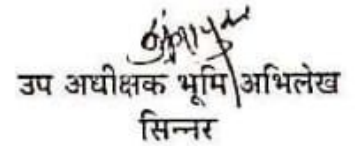 उप अधीक्षक भूमि अभिलेख
सिन्नर